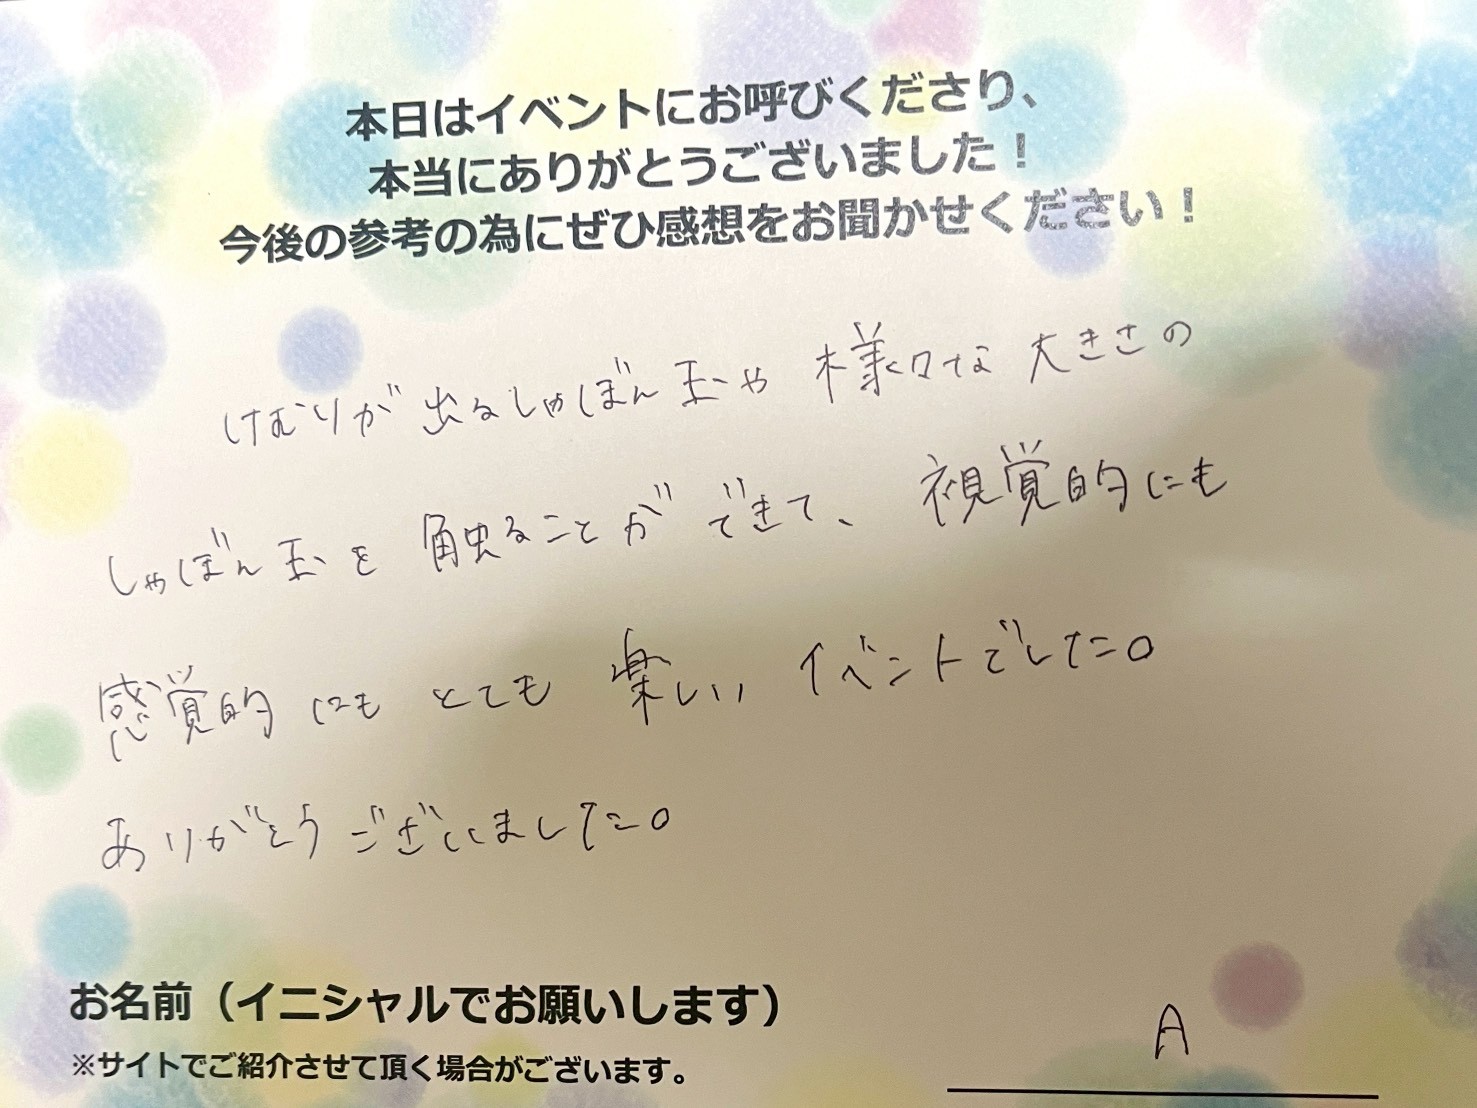 本日はイベントにお呼びくださり、
本当にありがとうございました！
今後の参考の為にぜひ感想をお聞かせください！
けむりが出るしゃぼん玉や様々な大きさの
しゃぼん玉を触ることができて、視覚的にも
感覚的にもとても楽しいイベントでした。
ありがとうございました。
お名前（イニシャルでお願いします）
A
※サイトでご紹介させて頂く場合がございます。